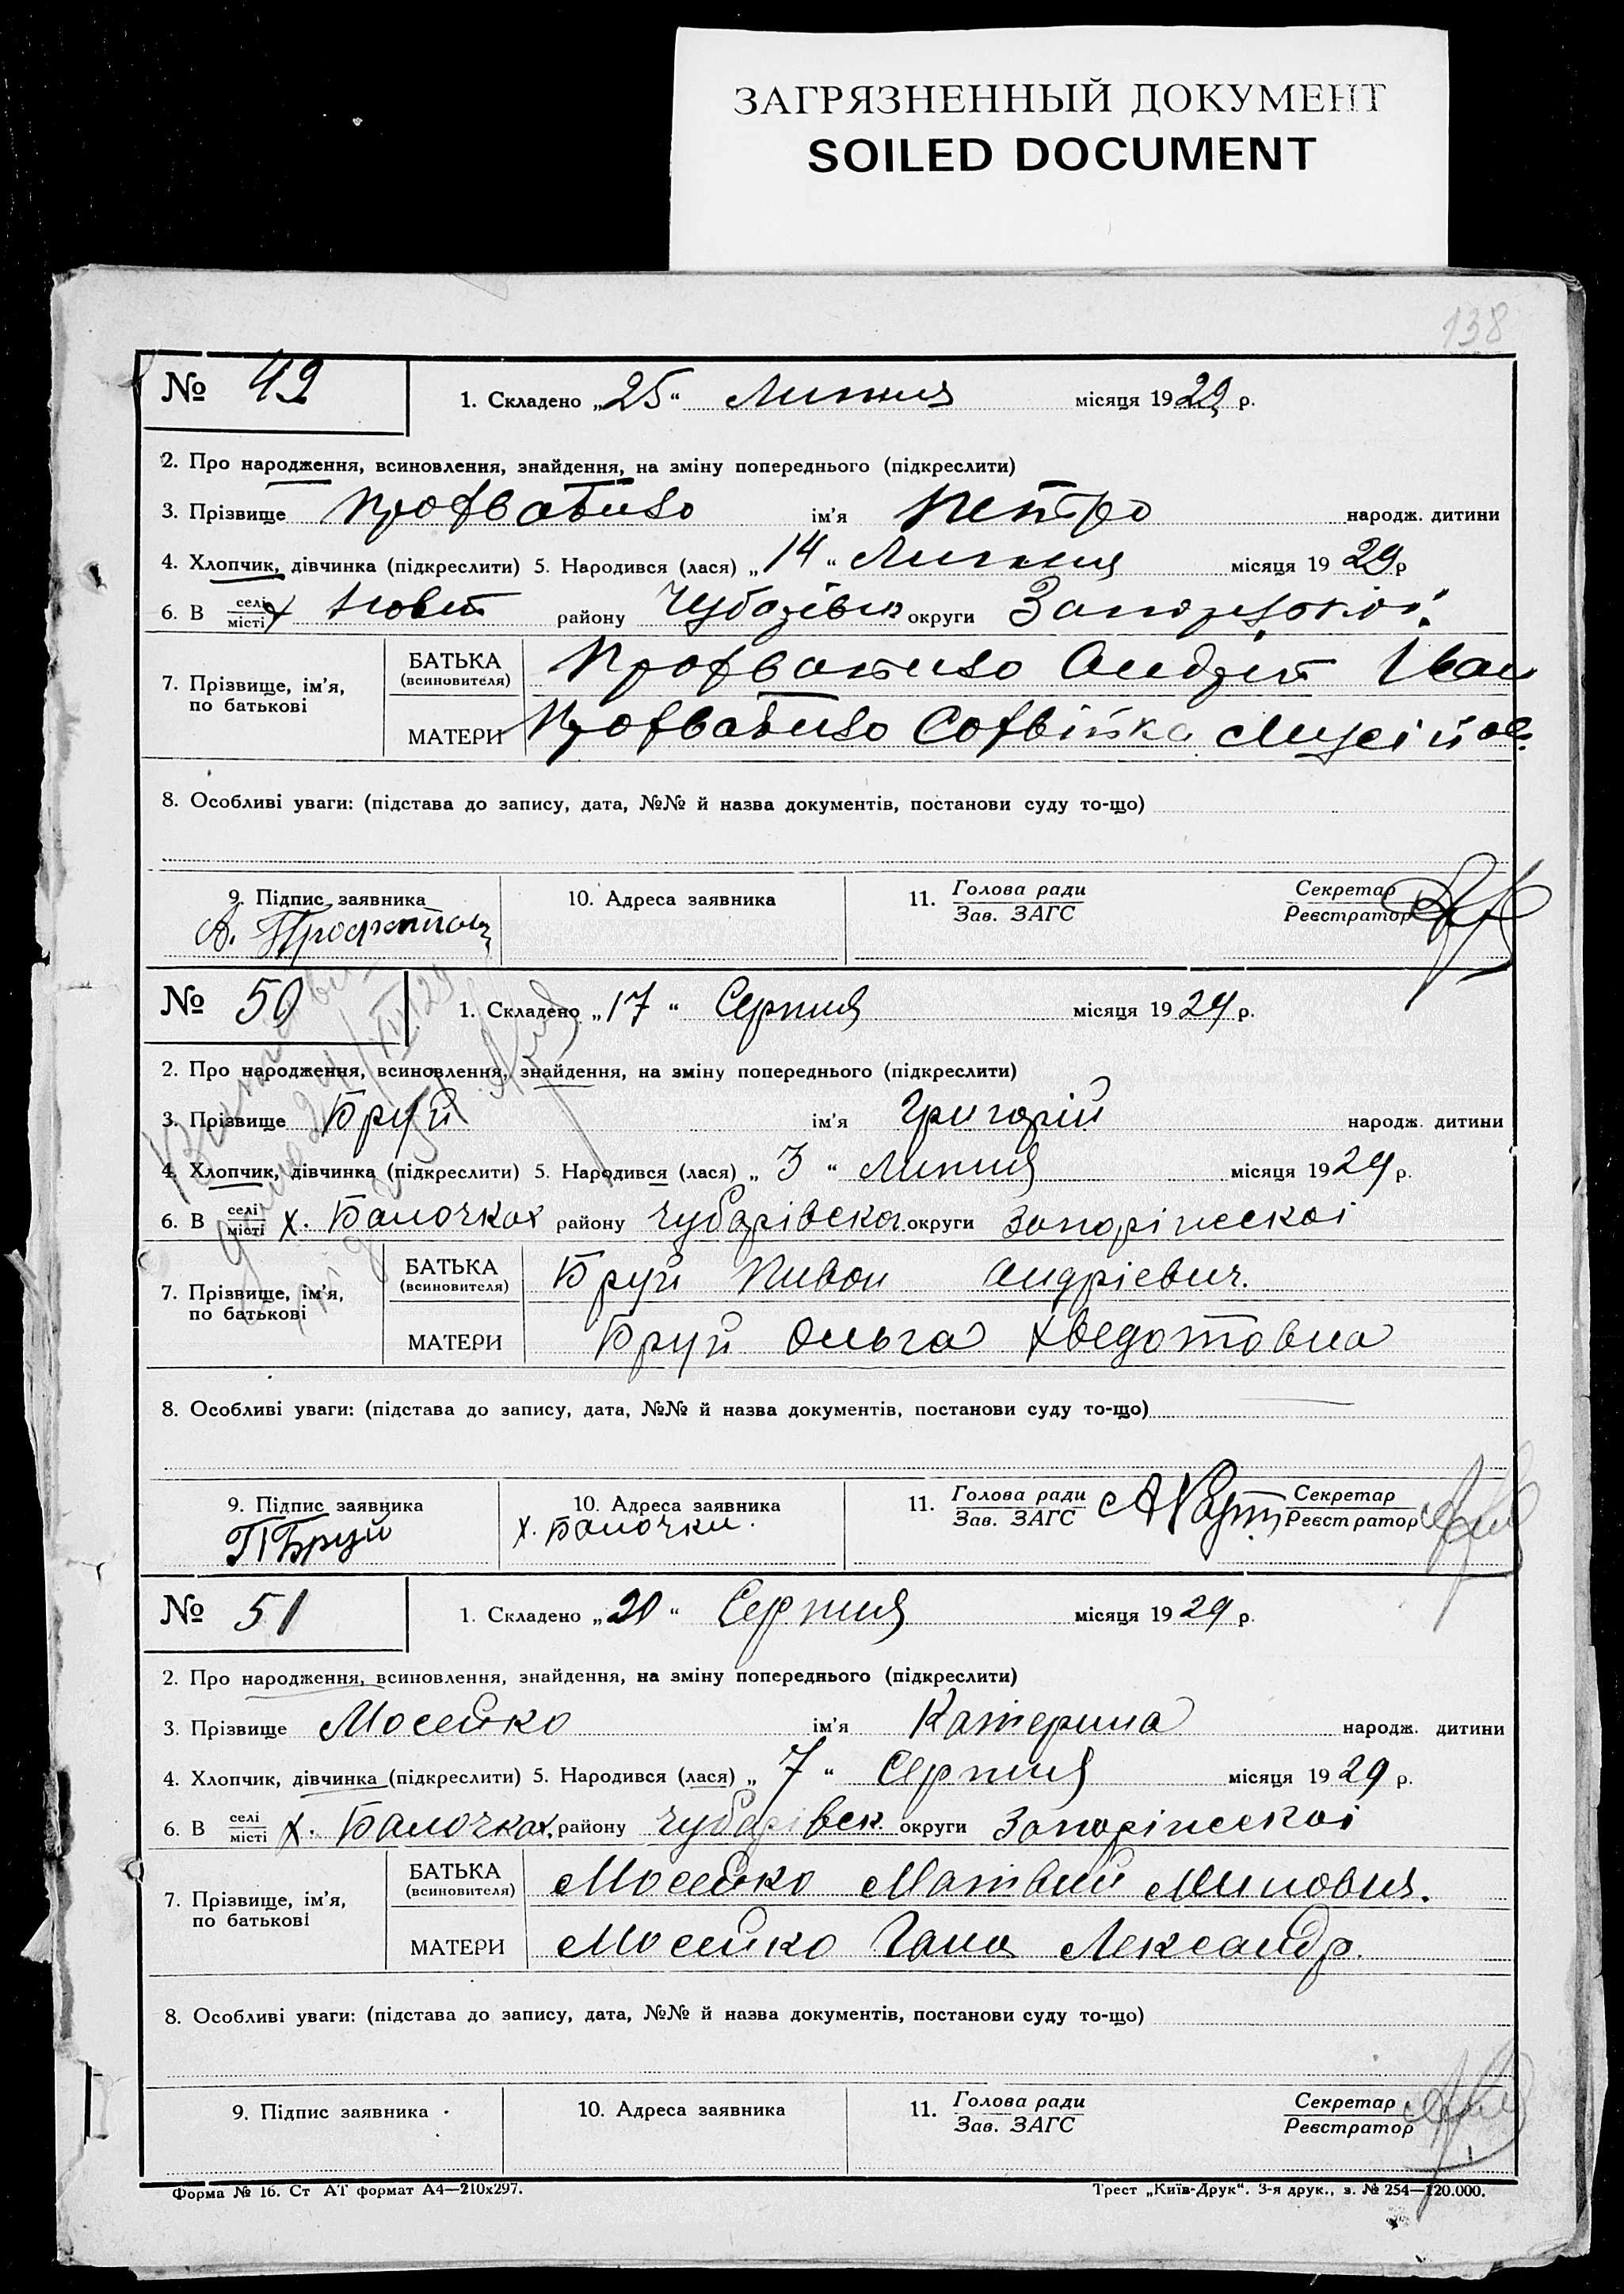 ЗАГРЯЗНЕННЫЙ ДОКУМЕНТ
SOILED DOCUMENT
138
№ 49
1. Складено „25“ Липня місяця 1929 р.
2. Про народження, всиновлення, знайдення, на зміну попереднього (підкреслити)
3. Прізвище ім'я Петро народж. дитини
4. Хлопчик, дівчинка (підкреслити) 5. Народився (лася) „14“ Липня місяця 1929 р
6. В селі/місті х району округи
7. Прізвище, ім'я, по батькові
БАТЬКА (всиновителя) Іван
МАТЕРИ
8. Особливі уваги: (підстава до запису, дата, №№ й назва документів, постанови суду то-що)
9. Підпис заявника
10. Адреса заявника
11. Голова ради / Зав. ЗАГС
Секретар / Реєстратор
№ 50
1. Складено „17“ Серпня місяця 1929 р.
2. Про народження, всиновлення, знайдення, на зміну попереднього (підкреслити)
3. Прізвище Бруй ім'я Григорій народж. дитини
4. Хлопчик, дівчинка (підкреслити) 5. Народився (лася) „3“ Липня місяця 1929 р.
6. В селі/місті х. Балочках району Чубарівськ. округи Запоріжської
7. Прізвище, ім'я, по батькові
БАТЬКА (всиновителя) Бруй Пивон Андрієвич.
МАТЕРИ Бруй Ольга Хведотовна
8. Особливі уваги: (підстава до запису, дата, №№ й назва документів, постанови суду то-що)
9. Підпис заявника
П Бруй
10. Адреса заявника
х. Балочки.
11. Голова ради / Зав. ЗАГС
Секретар / Реєстратор
№ 51
1. Складено „20“ Серпня місяця 1929 р.
2. Про народження, всиновлення, знайдення, на зміну попереднього (підкреслити)
3. Прізвище Мосейко ім'я Катерина народж. дитини
4. Хлопчик, дівчинка (підкреслити) 5. Народився (лася) „7“ Серпня місяця 1929 р.
6. В селі/місті х. Балочках. району Чубарівськ округи Запоріжської
7. Прізвище, ім'я, по батькові
БАТЬКА (всиновителя) Мосейко Матвий Минович.
МАТЕРИ Мосейко Гана Лександр.
8. Особливі уваги: (підстава до запису, дата, №№ й назва документів, постанови суду то-що)
9. Підпис заявника
10. Адреса заявника
11. Голова ради / Зав. ЗАГС
Секретар / Реєстратор
Форма № 16. Ст АТ формат А4—210х297.
Трест „Київ-Друк“. 3-я друк., з. № 254—120.000.